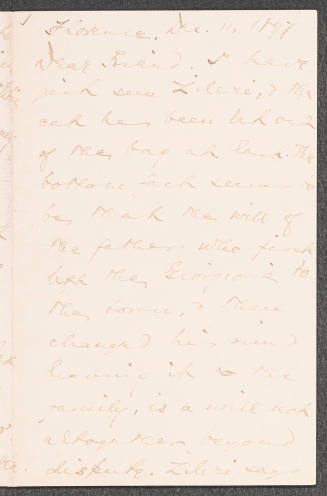 Florence, Dec. 11, 1897
Dear Friend. I have
just seen Zileri, & the
cat has been let out
of the bag at last. The
bottom fact seems to
be that the will of
the father who first
left the Giorgione to
the town, & then
changed his mind
leaving it to the
family, is a will not
altogether beyond
dispute. Zileri says